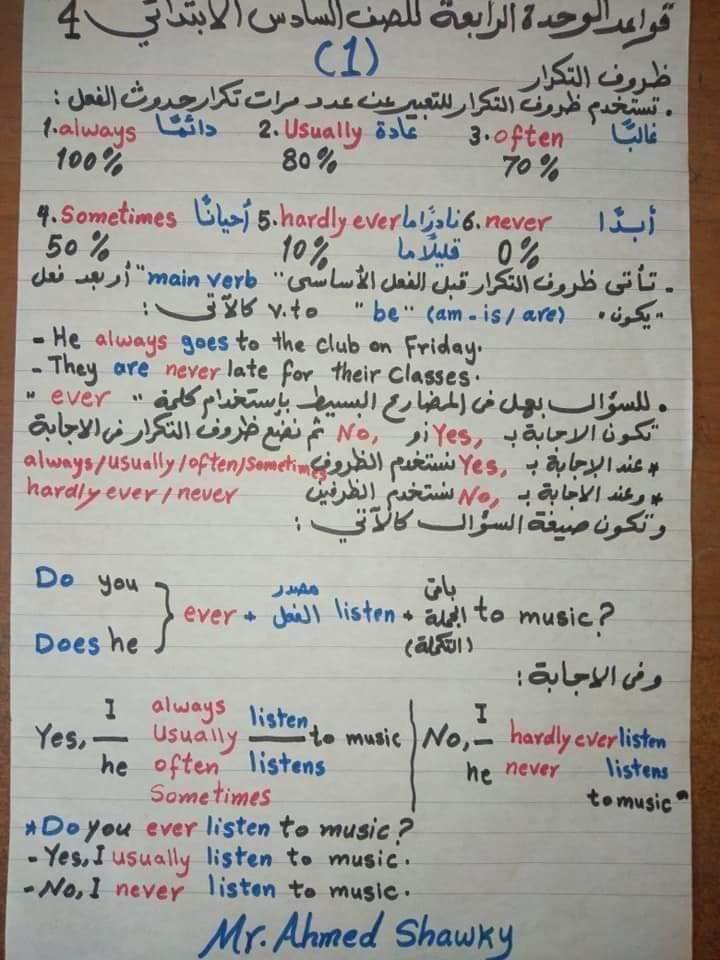 قواعد الوحدة الرابعة للصف السادس الابتدائي 4
(1)
ظروف التكرار
. تستخدم ظروف التكرار للتعبير عن عدد مرات تكرار حدوث الفعل :
1.always دائمًا 2.Usually عادة 3.often غالبًا
100% 80% 70%
4.Sometimes أحيانًا 5.hardly ever نادرًا ما 6.never أبدًا
50% 10% قليلًا ما 0%
. تأتى ظروف التكرار قبل الفعل الأساسى "main verb" أو بعد فعل
"يكون" v.to "be" (am-is/are) كالآتي :
- He always goes to the club on Friday.
- They are never late for their classes.
. للسؤال بهل فى المضارع البسيط بإستخدام كلمة "ever"
تكون الاجابة بـ Yes, أو No, ثم نضع ظروف التكرار فى الاجابة
* عند الإجابة بـ Yes, نستخدم الظروف always/usually/often/Sometimes
* وعند الاجابة بـ No, نستخدم الظرفين hardly ever/never
وتكون صيغة السؤال كالآتي :
Do you
Does he } ever + مصدر الفعل listen + باقى الجملة (التكملة) to music?
وفى الاجابة :
Yes, I / he always Usually often Sometimes listen / listens to music
No, I / he hardly ever never listen listens to music
*Do you ever listen to music?
- Yes, I usually listen to music.
- No, I never listen to music.
Mr. Ahmed Shawky